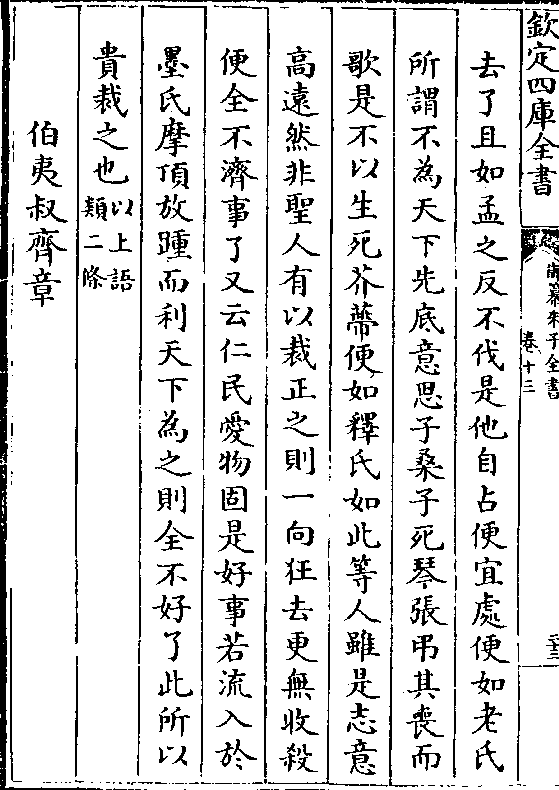 欽定四庫全書
御纂朱子全書
卷十三
去了且如孟之反不伐是他自占便宜處便如老氏
所謂不為天下先底意思子桑子死琴張弔其喪而
歌是不以生死芥蔕便如釋氏如此等人雖是志意
高遠然非聖人有以裁正之則一向狂去更無收殺
便全不濟事了又云仁民愛物固是好事若流入於
墨氏摩頂放踵而利天下為之則全不好了此所以
貴裁之也以上語
類二條
伯夷叔齊章